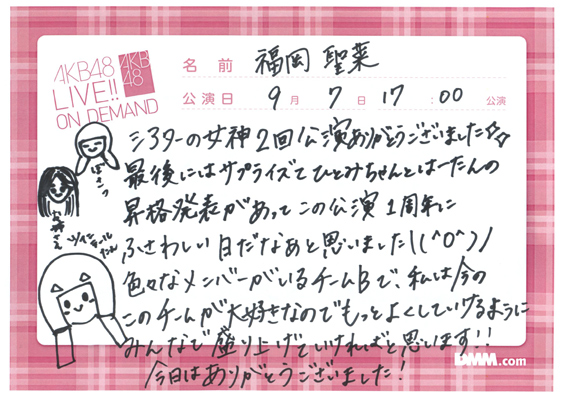 AKB48
LIVE!!
ON DEMAND
AKB
48
名前 福岡 聖菜
公演日 9月 7日 17:00 公演
シアターの女神2回公演ありがとうございました☆☆
最後にはサプライズでひとみちゃんとはーたんの
昇格発表があってこの公演1周年に
ふさわしい日だなぁと思いました\(^O^)/
色々なメンバーがいるチームBで、私は今の
このチームが大好きなのでもっとよくしていけるように
みんなで盛り上げていければと思います!!
今日はありがとうございました!
DMM.com